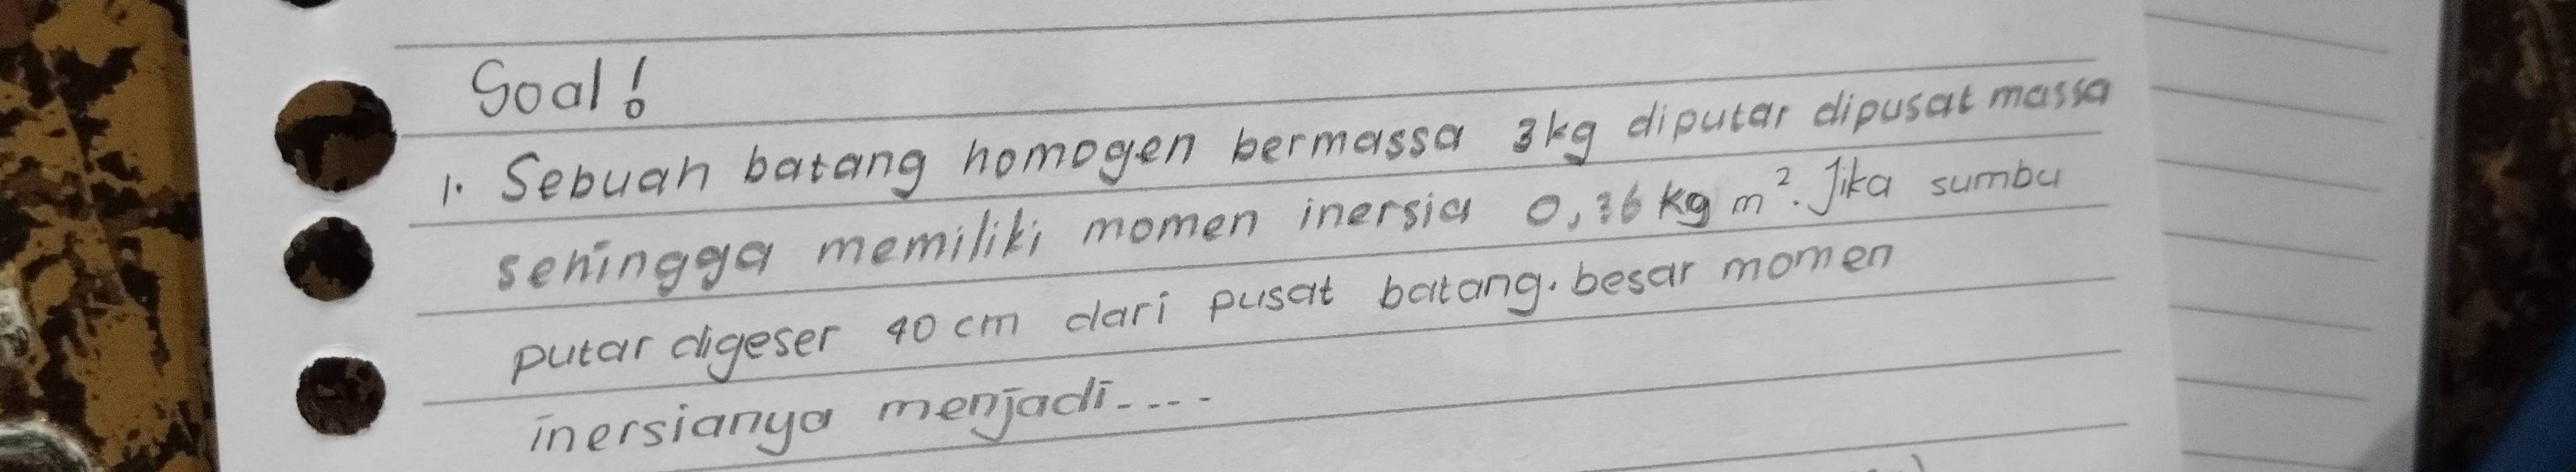 Soal!
1. Sebuah batang homogen bermassa 3kg diputar dipusat massa
sehingga memiliki momen inersia 0,36 kg m². Jika sumbu
putar digeser 40 cm dari pusat batang. besar momen
inersianya menjadi----